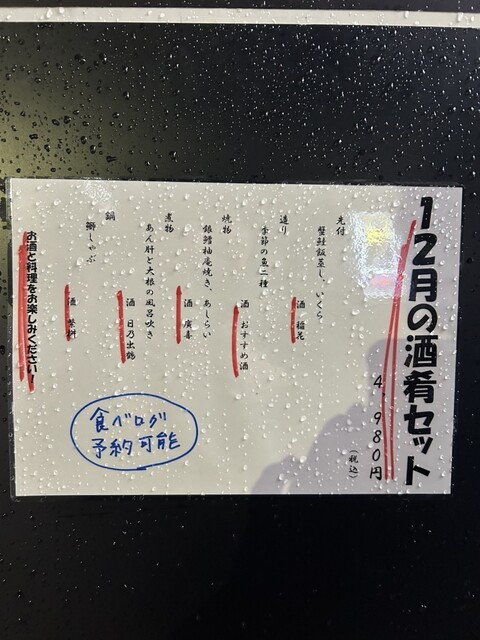 12月の酒肴セット
4,980円
(税込)
先付
蟹飯蒸し、いくら
酒 稲花
造り
季節の魚二種
酒 おすすめ酒
焼物
銀鱈柚庵焼き、あしらい
酒 廣喜
煮物
あん肝と大根の風呂吹き
酒 日乃出鶴
鍋
鰤しゃぶ
酒 繁桝
お酒と料理をお楽しみください!
食べログ
予約可能